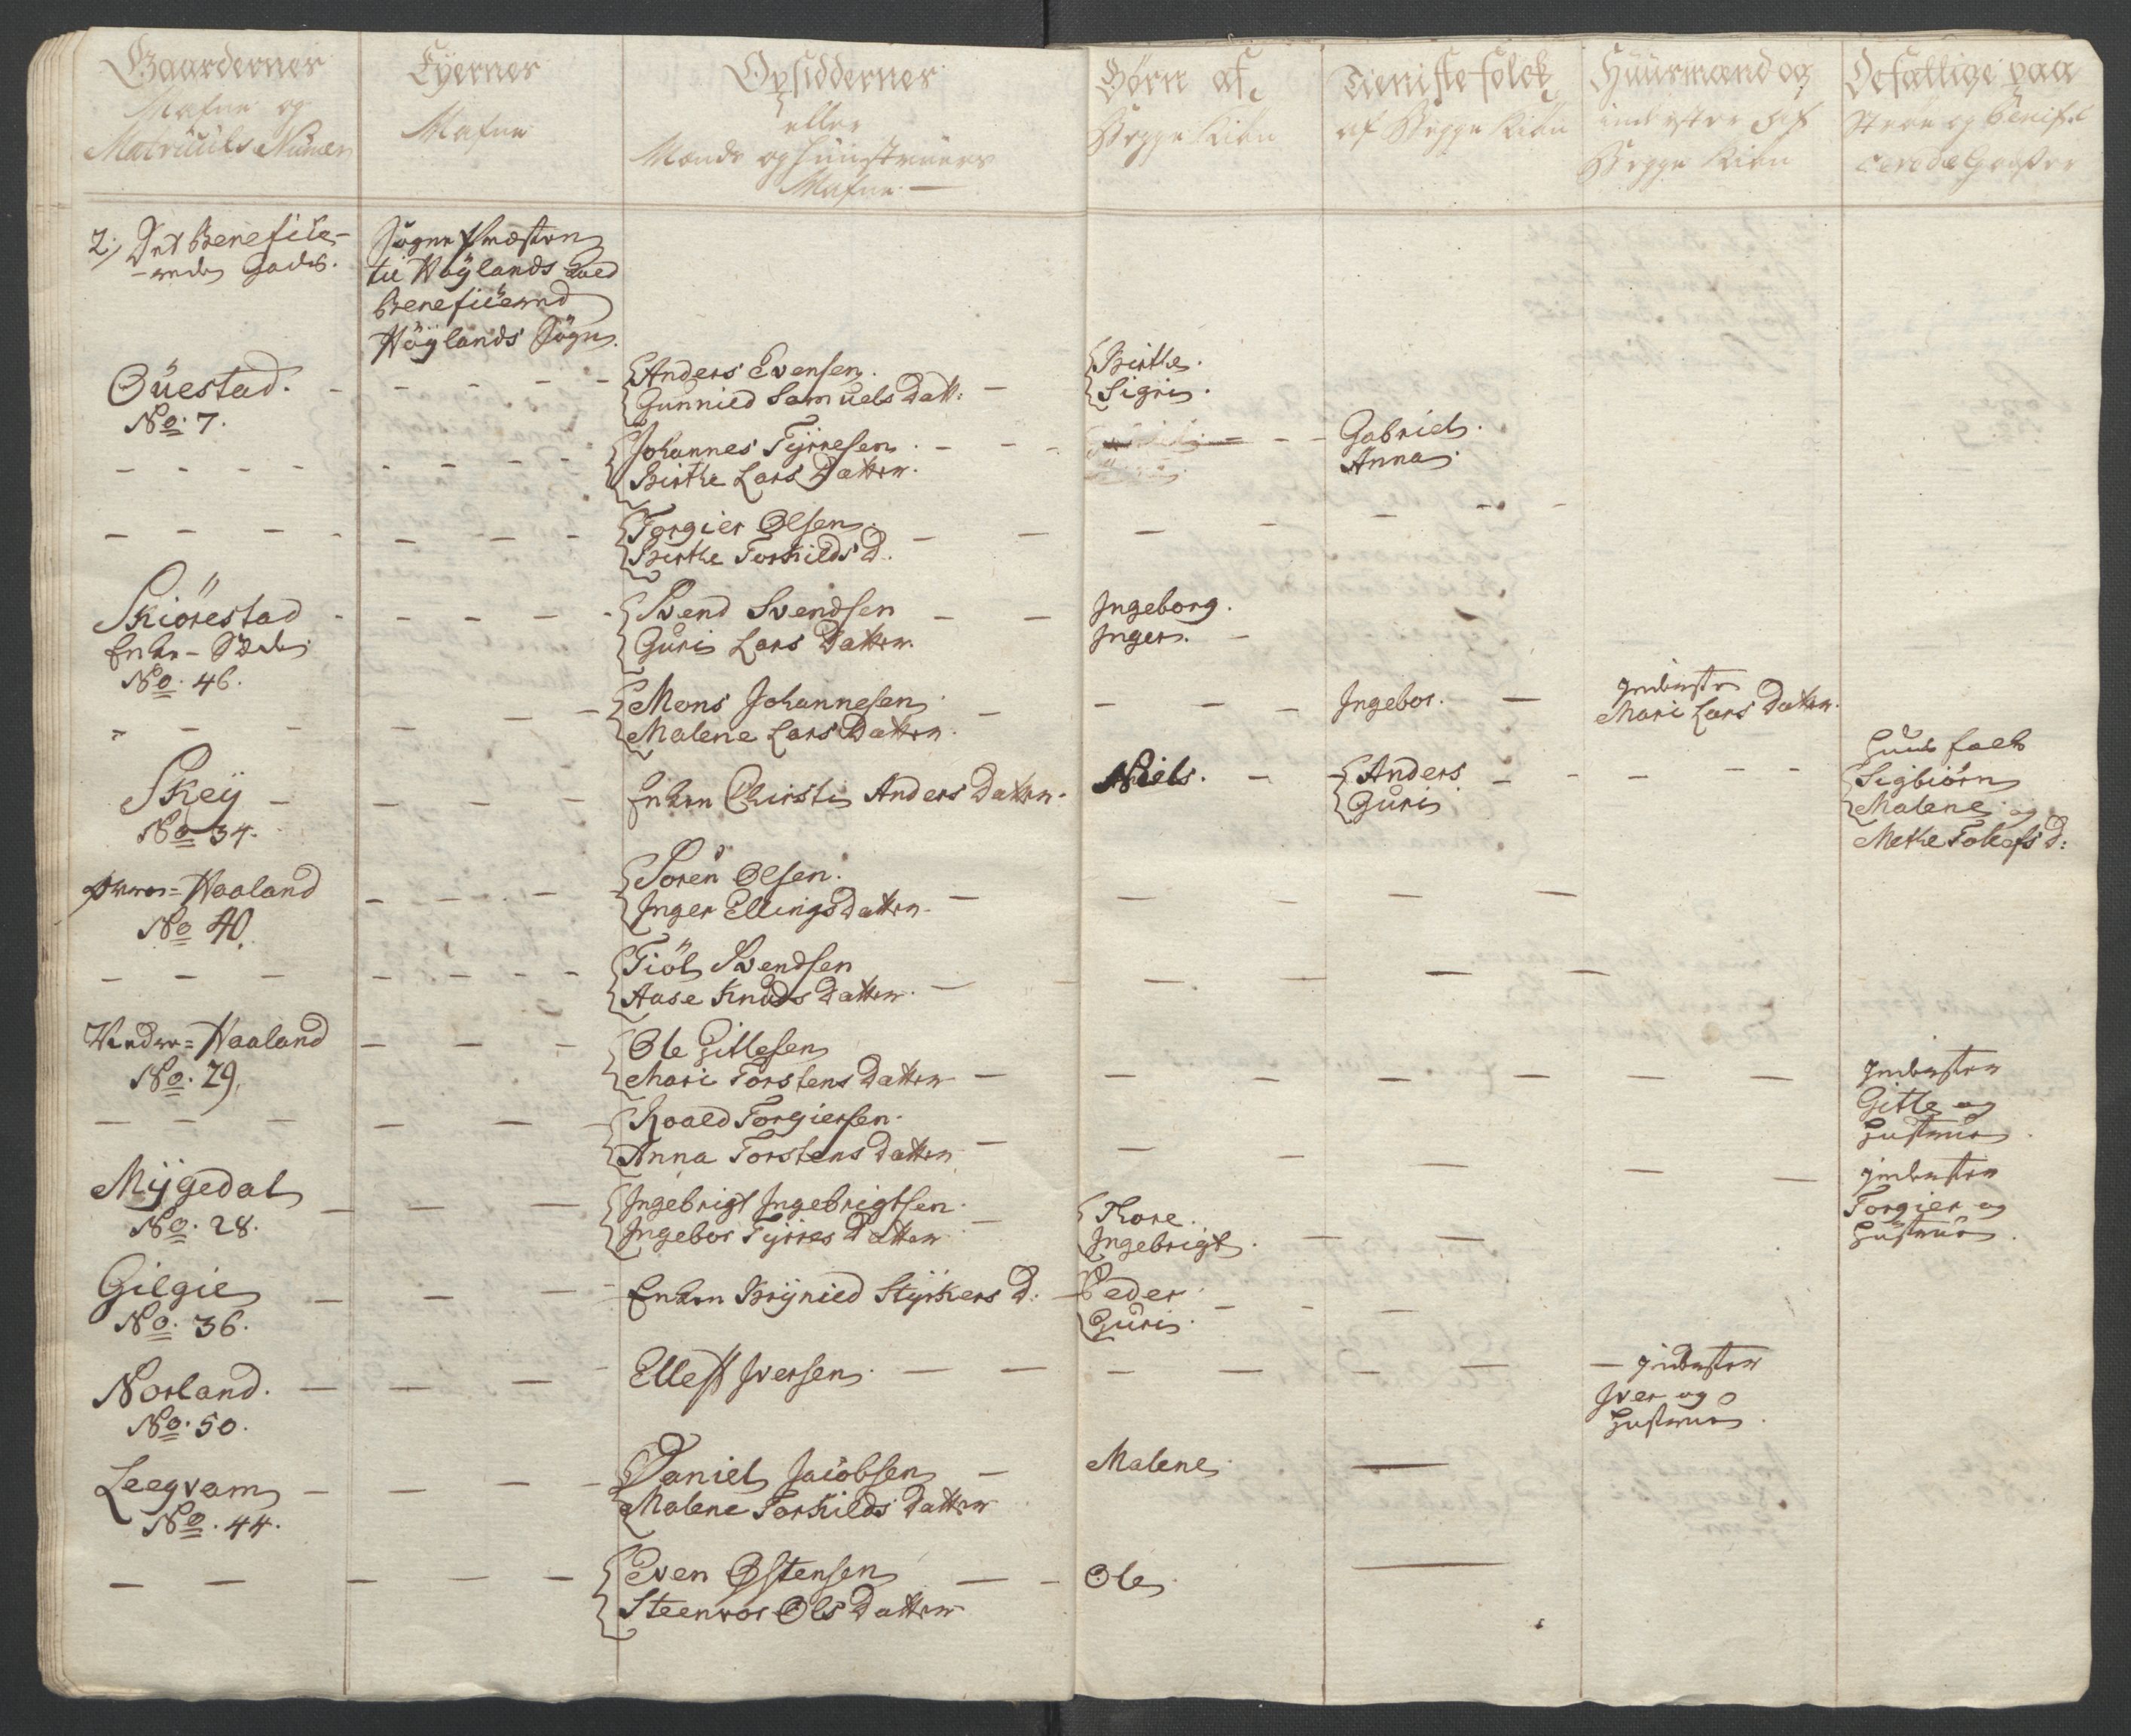 Gaardernes
Nafne og
Matriculs Numer
Eyernes
Nafne
Opsiddernes
eller
Mends og Huustruers
Nafne
Børn af
Begge Kiøn
Tieniste folck
af Begge Kiøn
Huusmænd og
inderster af
Begge Kiøn
2, Det Beneficе-
-rede Gods.
Sogne Præsten
til Höylands Kald
Beneficeered
Höylands Sogn.
Öuestad.
No. 7.
Anders Evensen.
Gunnild Samuels Datt:
Birthe.
Sigri.
Johannes Tÿrresen
Birthe Lars Datter.
Gabriel.
Anna.
Torgier Olsen.
Birthe Torkilds D.
Skiörestad
No. 46.
Svend Svendsen
Guri Lars Datter.
Ingeborg.
Inger.
Mons Johannesen
Malene Lars Datter.
Ingebor.
Inderste
Mari Lars Datter.
Skeÿ
No 34.
Enken Christi Anders Datter.
Niels.
Anders
Guri
Huus folk
Sigbiörn
Malene og
Methe Tollefs D:
Haaland
No 40.
Sören Olsen.
Inger Ellings datter.
Tiöl Svendsen
Aase Knuds Datter.
Haaland
No. 29.
Ole Gitlesen
Mari Torstens Datter
Inderster
Gitle og
Hustrue.
Roald Torgiersen.
Anna Torstens Datter
Inderster
Torgier og
Hustrue.
Mÿgedal
No. 28.
Ingebrigt Ingebrigtsen.
Ingebor Tÿrres Datter
Tore.
Ingebrigt.
Gilgie
No. 36.
Enken Brÿnild Stÿrkers D.
Peder
Guri.
Norland.
No. 50.
Ellef Iversen.
Inderster
Iver og
Hustrue.
Leegvam
No. 44.
Daniel Jacobsen
Malene Torkilds Datter
Malene
Even Østensen
Steenvor Ols Datter
Ole